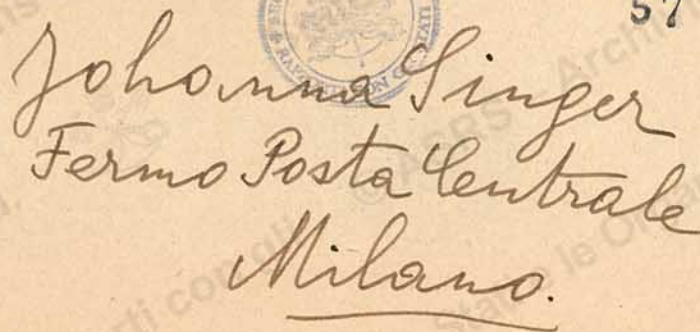 57
Johanna Singer
Fermo Posta Centrale
Milano.